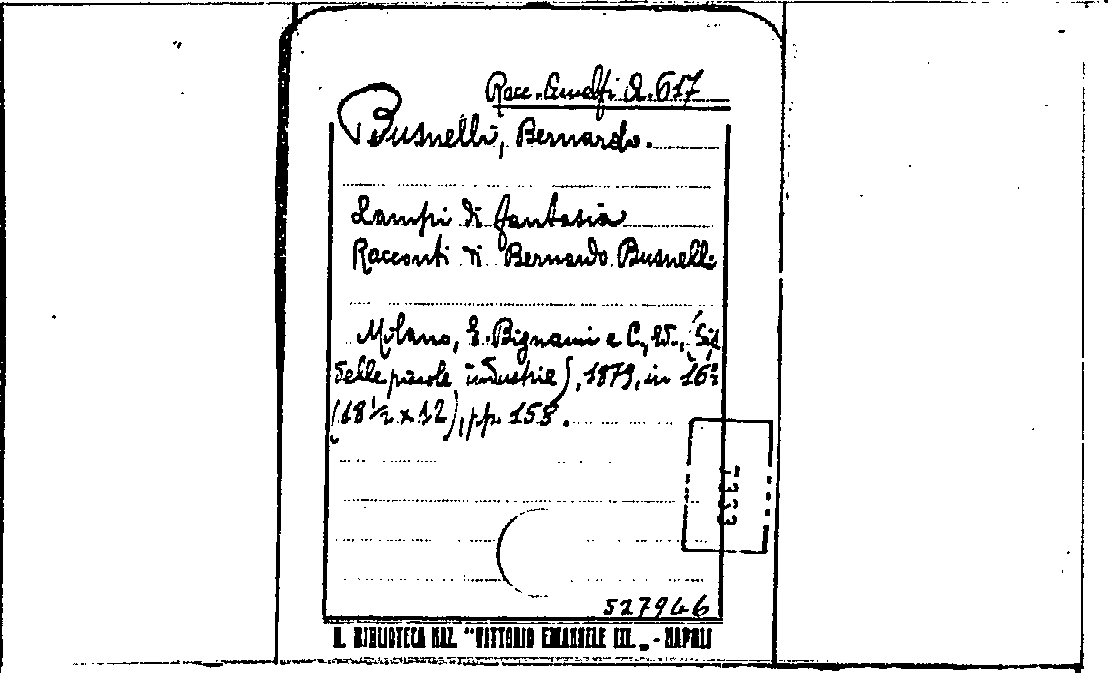 Racc. Amalfi A. 617
Busnelli, Bernardo.
Lampi di fantasia
Racconti di Bernardo Busnelli
Milano, E. Bignami e C., Ed., (Tip.
delle piccole industrie), 1879, in 16º
(18 ½ x 12), pp. 158.
527946
R. BIBLIOTECA NAZ. "VITTORIO EMANUELE III„ - NAPOLI